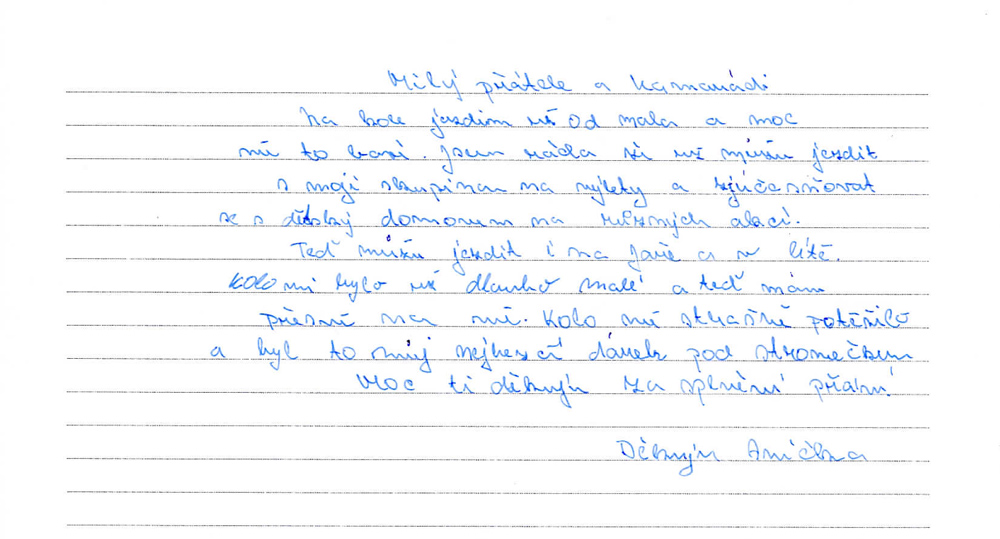 Milý přátele a kamarádi
na kole jezdím už od mala a moc
mě to baví. Jsem ráda ži už můžu jezdit
s moji skupinou na výlety a zůčasňovat
se s dětský domovem na různých akcí.
Teď můžu jezdit i na jaře a v lítě.
Kolo mi bylo už dlouho malé a teď mám
přesně na mě. Kolo mě strašně potěšilo
a byl to můj nejhezcí dárek pod stromečkem
Moc ti děkuju za splnění přání.
Děkuju Anička